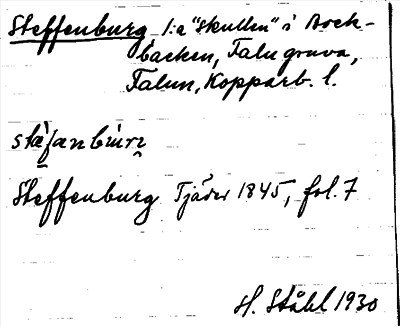 Steffenburg 1:a "Skullen" i Bock-
backen, Falu gruva,
Falun, Kopparb. l.
Steffenburg Tjäder 1845, fol. 7
H. Ståhl 1930